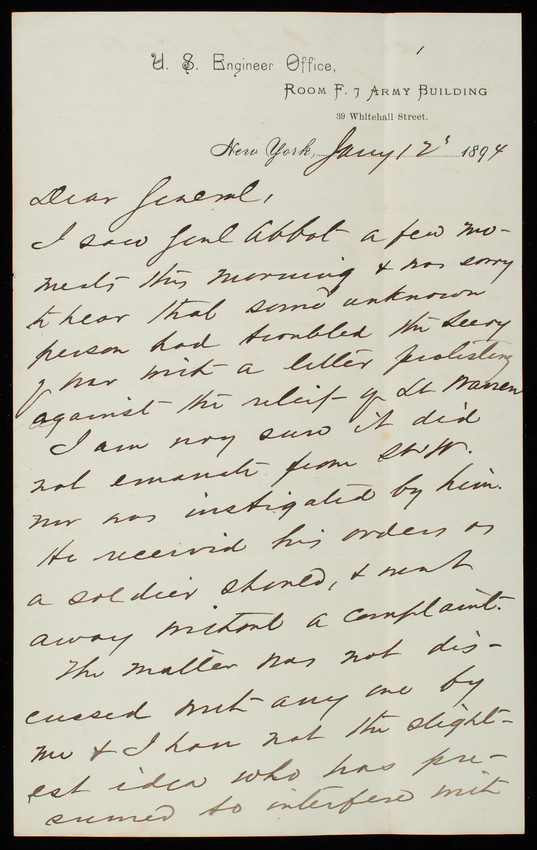 U. S. Engineer Office,
Room F. 7 Army Building
39 Whitehall Street.
New York, Jany 12 1894
Dear General,
I saw Genl Abbot a few mo-
ments this morning & was sorry
to hear that some unknown
person had troubled the Secy
of War with a letter protesting
against the relief of Lt Warren
I am very sure it did
not emanate from Lt W.
nor was instigated by him.
He received his orders as
a soldier should, & went
away without a complaint.
The matter was not dis-
cussed with any one by
me & I have not the slight-
est idea who has pre-
sumed to interfere with